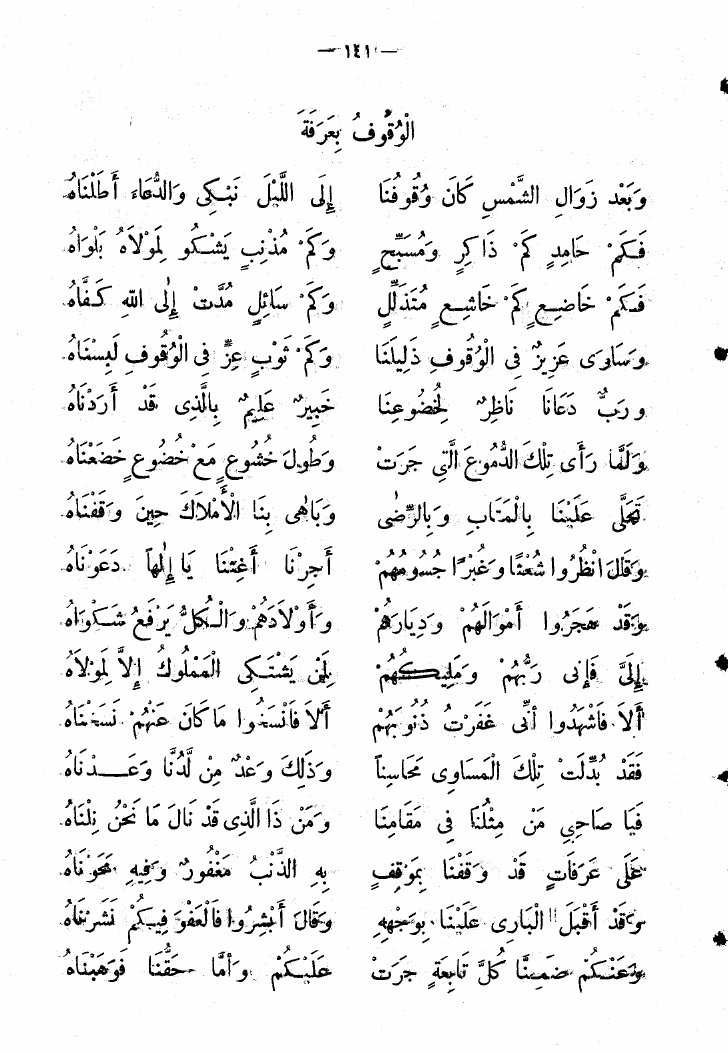 — ١٤١ —
الْوُقُوفُ بِعَرَفَةَ
وَبَعْدَ زَوَالِ الشَّمْسِ كَانَ وُقُوفُنَا إِلَى اللَّيْلِ نَبْكِى وَالدُّعَاءَ أَطَلْنَاهُ
فَكَمْ حَامِدٍ كَمْ ذَاكِرٍ وَمُسَبِّحٍ وَكَمْ مُذْنِبٍ يَشْكُو لِمَوْلاَهُ بَلْوَاهُ
فَكَمْ خَاضِعٍ كَمْ خَاشِعٍ مُتَذَلِّلٍ وَكَمْ سَائِلٍ مُدَّتْ إِلَى اللهِ كَفَّاهُ
وَسَاوَى عَزِيزٌ فِى الْوُقُوفِ ذَلِيلَنَا وَكَمْ ثَوْبِ عِزٍّ فِى الْوُقُوفِ لَبِسْنَاهُ
وَرَبٌّ دَعَانَا نَاظِرٌ لِخُضُوعِنَا خَبِيرٌ عَلِيمٌ بِالَّذِى قَدْ أَرَدْنَاهُ
وَلَمَّا رَأَى تِلْكَ الدُّمُوعَ الَّتِى جَرَتْ وَطُولَ خُشُوعٍ مَعْ خُضُوعٍ خَضَعْنَاهُ
تَجَلَّى عَلَيْنَا بِالْمَتَابِ وَبِالرِّضَى وَبَاهَى بِنَا الْأَمْلاَكَ حِينَ وَقَفْنَاهُ
وَقَالَ انْظُرُوا شُعْثًا وَغُبْرًا جُسُومُهُمْ أَجِرْنَا أَغِثْنَا يَا إِلٰهاً دَعَوْنَاهُ
وَقَدْ هَجَرُوا أَمْوَالَهُمْ وَدِيَارَهُمْ وَأَوْلاَدَهُمْ وَالْكُلُّ يَرْفَعُ شَكْوَاهُ
إِلَىَّ فَإِنِّى رَبُّهُمْ وَمَلِيكُهُمْ لِمَنْ يَشْتَكِى الْمَمْلُوكُ إِلاَّ لِمَوْلاَهُ
أَلاَ فَاشْهَدُوا أَنِّى غَفَرْتُ ذُنُوبَهُمْ أَلاَ فَانْسَخُوا مَا كَانَ عَنْهُمْ نَسَخْنَاهُ
فَقَدْ بُدِّلَتْ تِلْكَ الْمَسَاوِى مَحَاسِناً وَذٰلِكَ وَعْدٌ مِنْ لَدُنَّا وَعَدْنَاهُ
فَيَا صَاحِبِى مَنْ مِثْلُنَا فِى مَقَامِنَا وَمَنْ ذَا الَّذِى قَدْ نَالَ مَا نَحْنُ نِلْنَاهُ
عَلَى عَرَفَاتٍ قَدْ وَقَفْنَا بِمَوْقِفٍ بِهِ الذَّنْبُ مَغْفُورٌ وَفِيهِ مَحَوْنَاهُ
وَقَدْ أَقْبَلَ الْبَارِى عَلَيْنَا بِوَجْهِهِ وَقَالَ أَبْشِرُوا فَالْعَفْوَ فِيكُمْ نَشَرْنَاهُ
وَعَنْكُمْ ضَمِنَّا كُلَّ تَابِعَةٍ جَرَتْ عَلَيْكُمْ وَأَمَّا حَقُّنَا فَوَهَبْنَاهُ